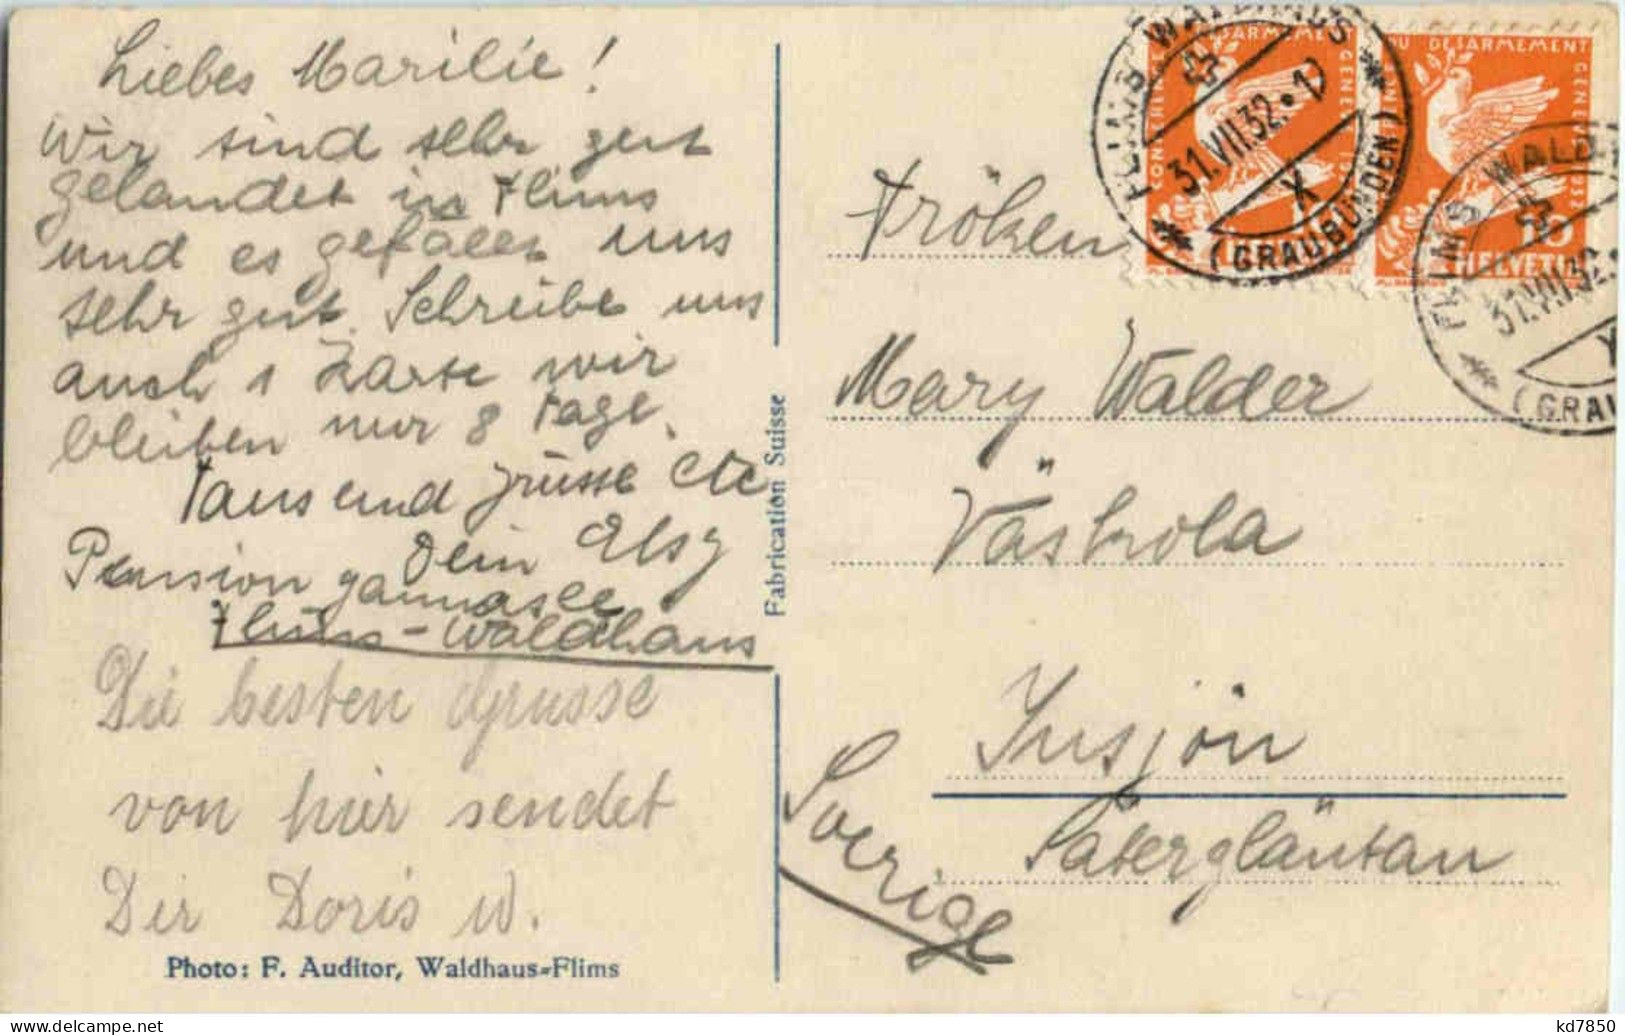 Liebes Marilie!
Wir sind sehr gut
gelandet in Flims
und es gefällt uns
sehr gut. Schreibe uns
auch 1 Karte wir
bleiben nur 8 Tage.
Tausend Grüsse etc
Dein Elsy
Pension
Flims-Waldhaus
Die besten Grüsse
von hier sendet
Dir Doris W.
Photo: F. Auditor, Waldhaus=Flims
Fabrication Suisse
FLIMS WALDHAUS
31.VII.32.
X
(GRAUBÜNDEN)
DU DESARMEMENT
GENEVE 1932
HELVETIA
FLIMS WALDH
31.VII.32.
(GRAU
Fröken
Mary Walder
Västrola
Insjön
Sätergläntan
Sverige
kd7850